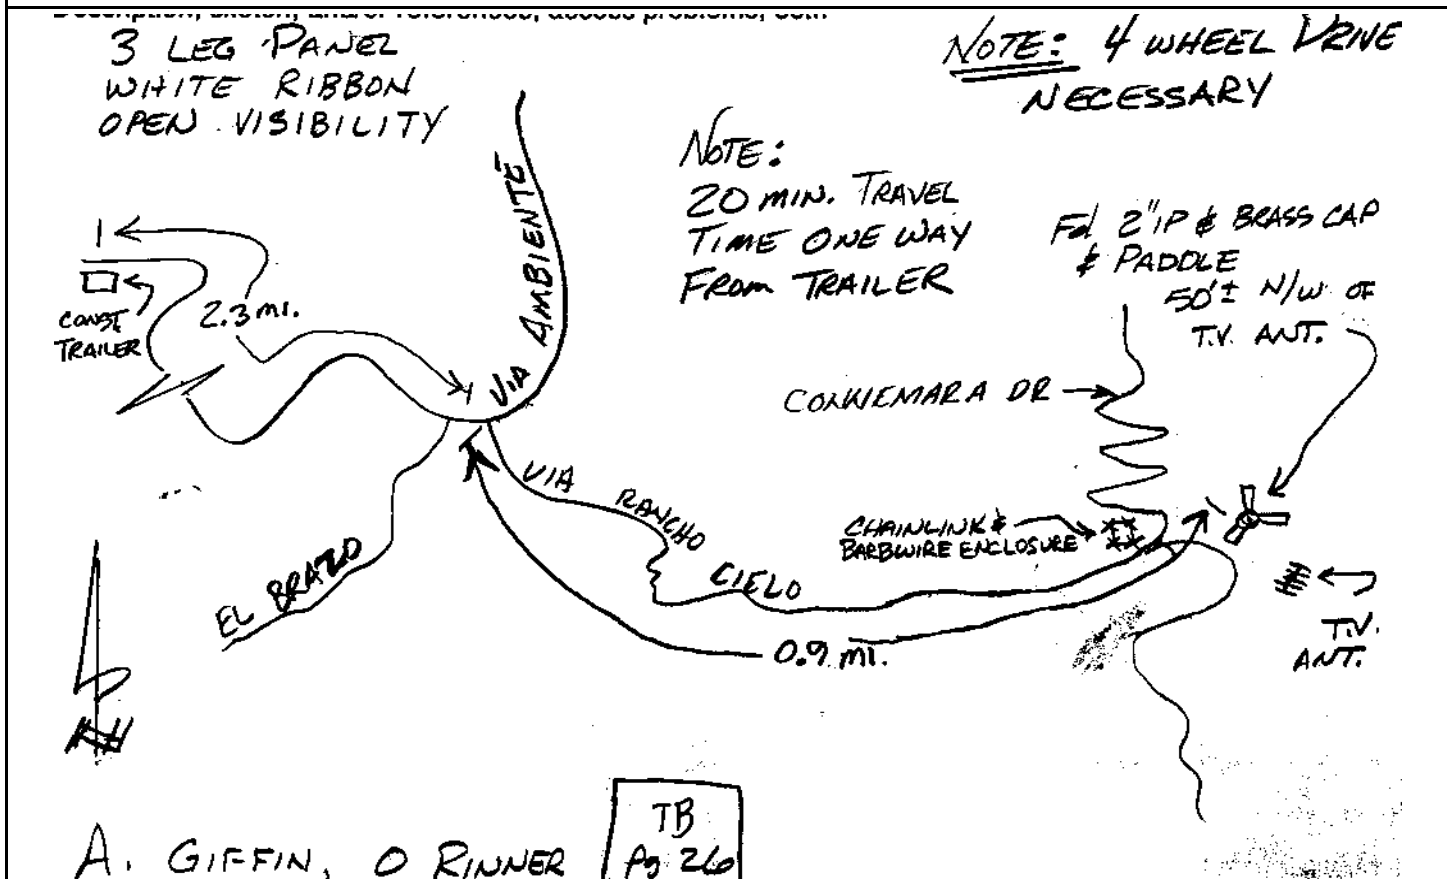 3 LEG PANEL
WHITE RIBBON
OPEN VISIBILITY
NOTE: 4 WHEEL DRIVE
NECESSARY
NOTE:
20 MIN. TRAVEL
TIME ONE WAY
FROM TRAILER
Fd 2" IP & BRASS CAP
& PADDLE
50'± N/W OF
T.V. ANT.
VIA AMBIENTE
CONST.
TRAILER
2.3 MI.
CONNEMARA DR
VIA RANCHO CIELO
CHAINLINK &
BARBWIRE ENCLOSURE
EL BRAZO
0.9 MI.
T.V.
ANT.
A. GIFFIN, O RINNER
TB
Pg 26